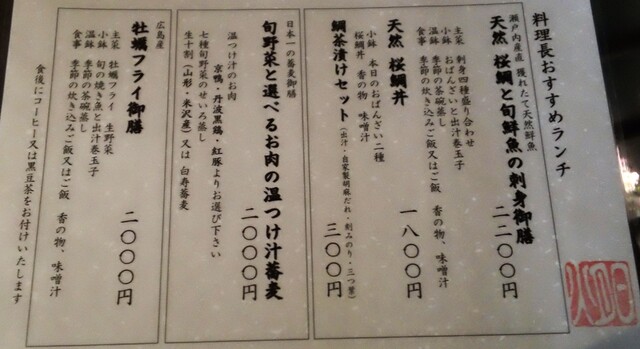 料理長おすすめランチ
瀬戸内産直 獲れたて天然鮮魚
天然 桜鯛と旬鮮魚の刺身御膳 二二〇〇円
主菜 刺身四種盛り合わせ
小鉢 おばんざいと出汁巻玉子
温鉢 季節の茶碗蒸し
食事 季節の炊き込みご飯又はご飯 香の物、味噌汁
天然 桜鯛丼 一八〇〇円
小鉢 本日のおばんざい二種
桜鯛丼 香の物 味噌汁
鯛茶漬けセット(出汁・自家製胡麻だれ・刻みのり・三つ葉) 三〇〇円
日本一の蕎麦御膳
旬野菜と選べるお肉の温つけ汁蕎麦 二〇〇〇円
温つけ汁のお肉
京鴨・丹波黒鶏・紅豚よりお選び下さい
七種旬野菜のせいろ蒸し
生十割(山形・米沢産)又は 白寿蕎麦
広島産
牡蠣フライ御膳 二〇〇〇円
主菜 牡蠣フライ 生野菜
小鉢 旬の焼き魚と出汁巻玉子
温鉢 季節の茶碗蒸し
食事 季節の炊き込みご飯又はご飯 香の物、味噌汁
食後にコーヒー又は黒豆茶をお付けいたします